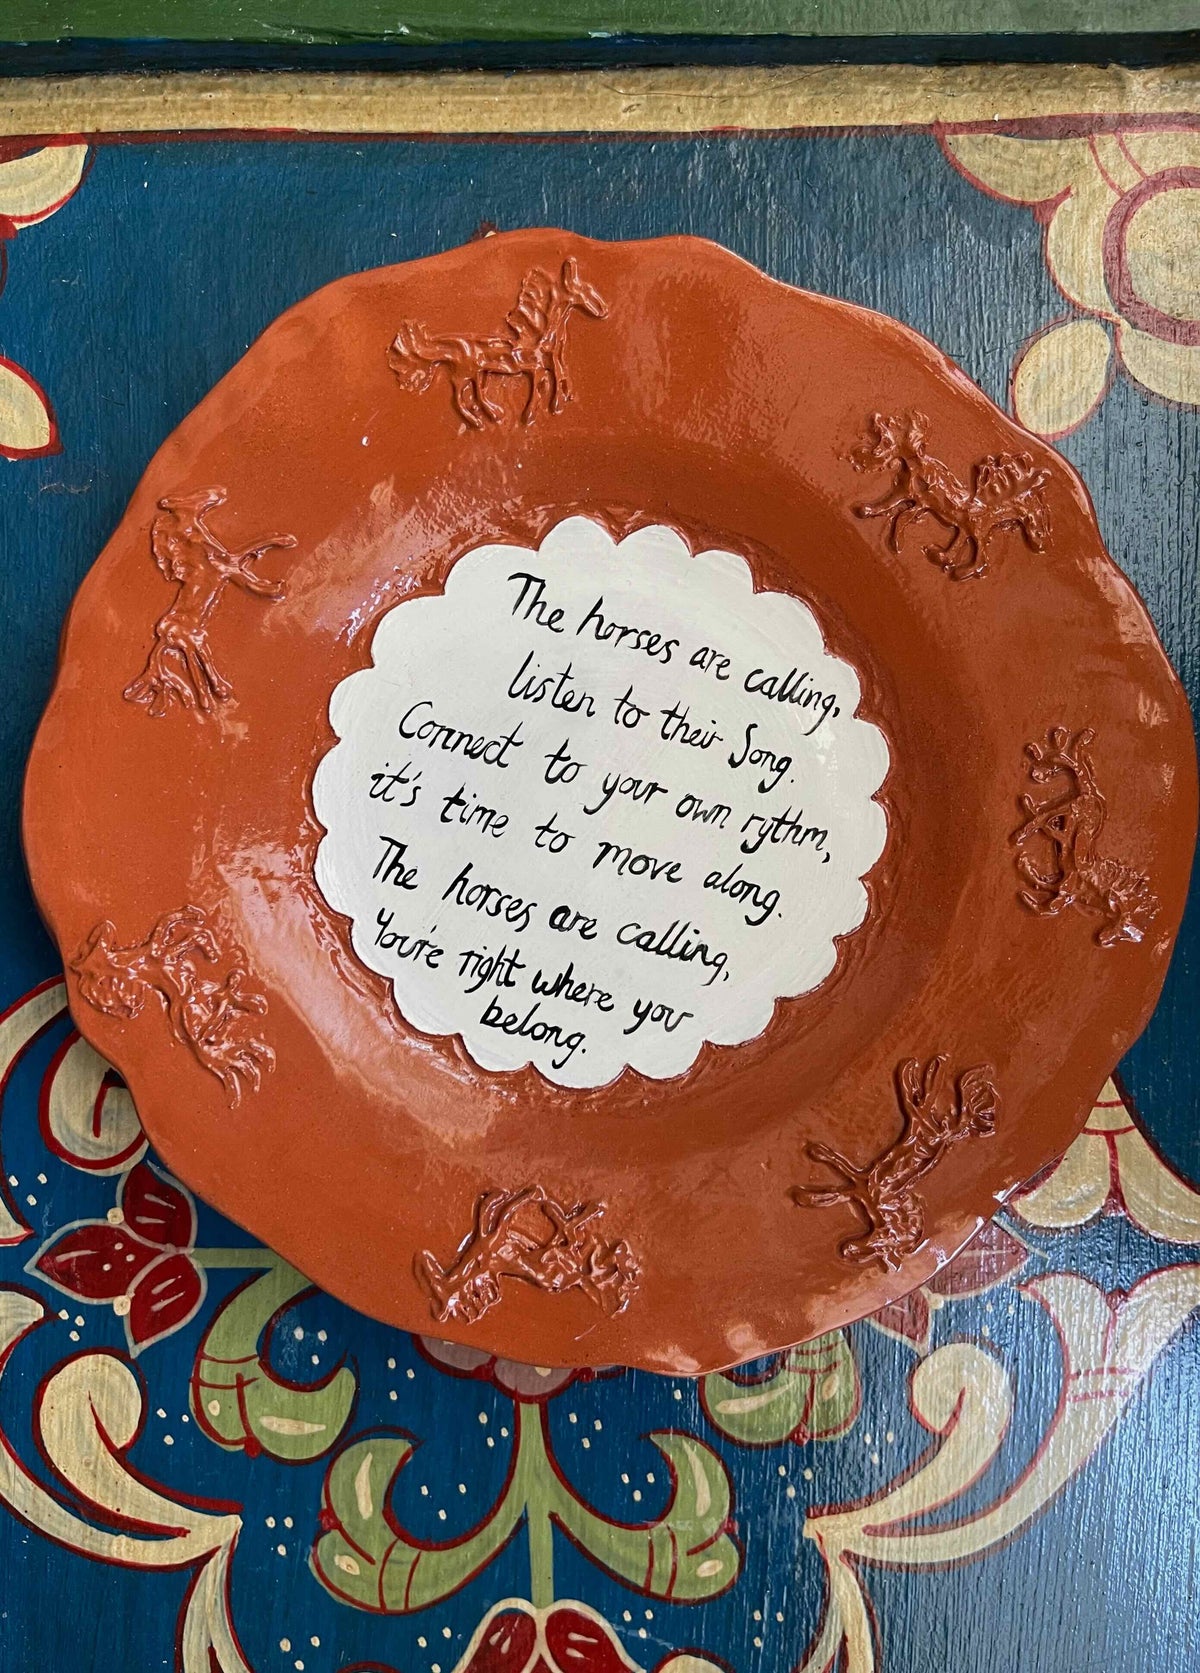 The horses are calling,
listen to their Song.
Connect to your own rythm,
it's time to move along.
The horses are calling,
You're right where you
belong.